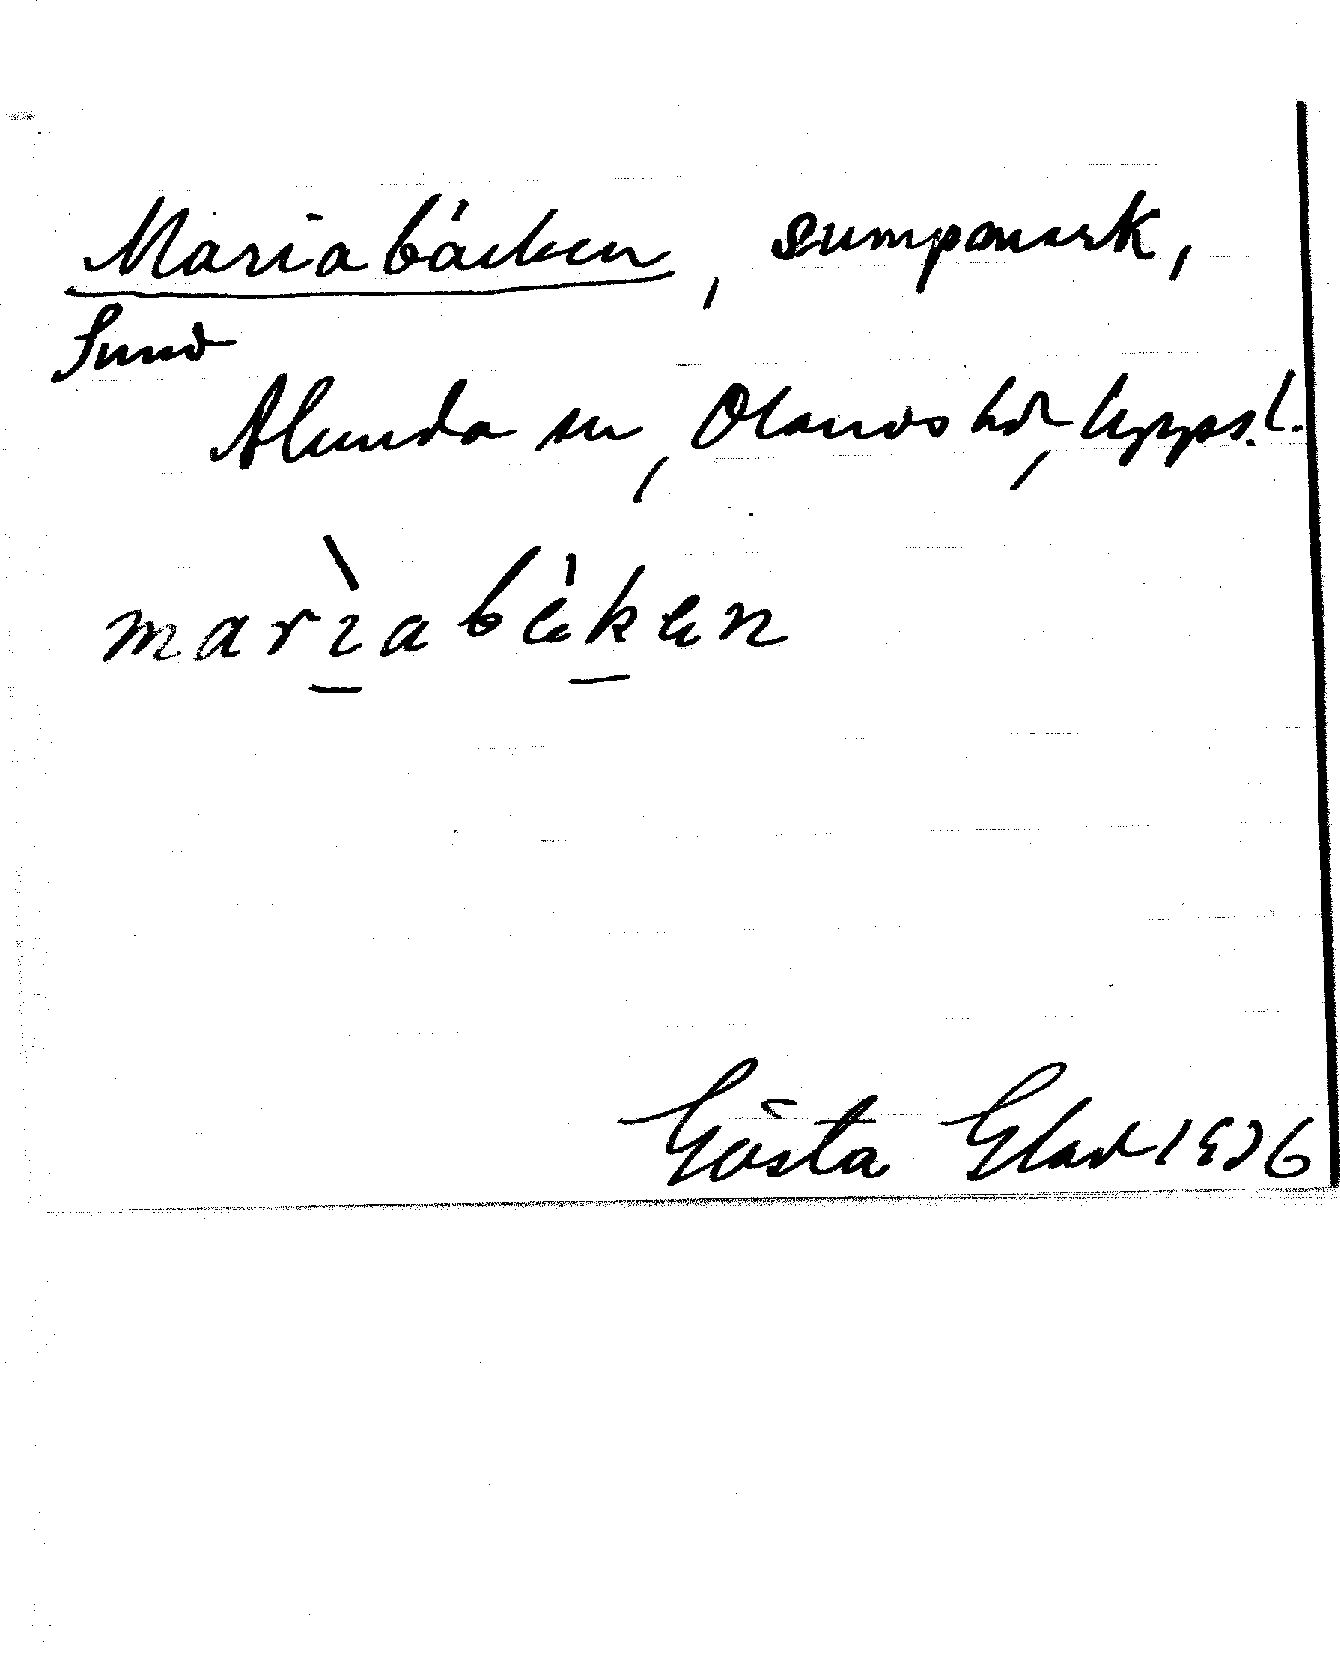 Mariabäcken, sumpmark,
Sund
Alunda sn, Olands hd, Upps. l.
marìabèken
Gösta Elad 1926